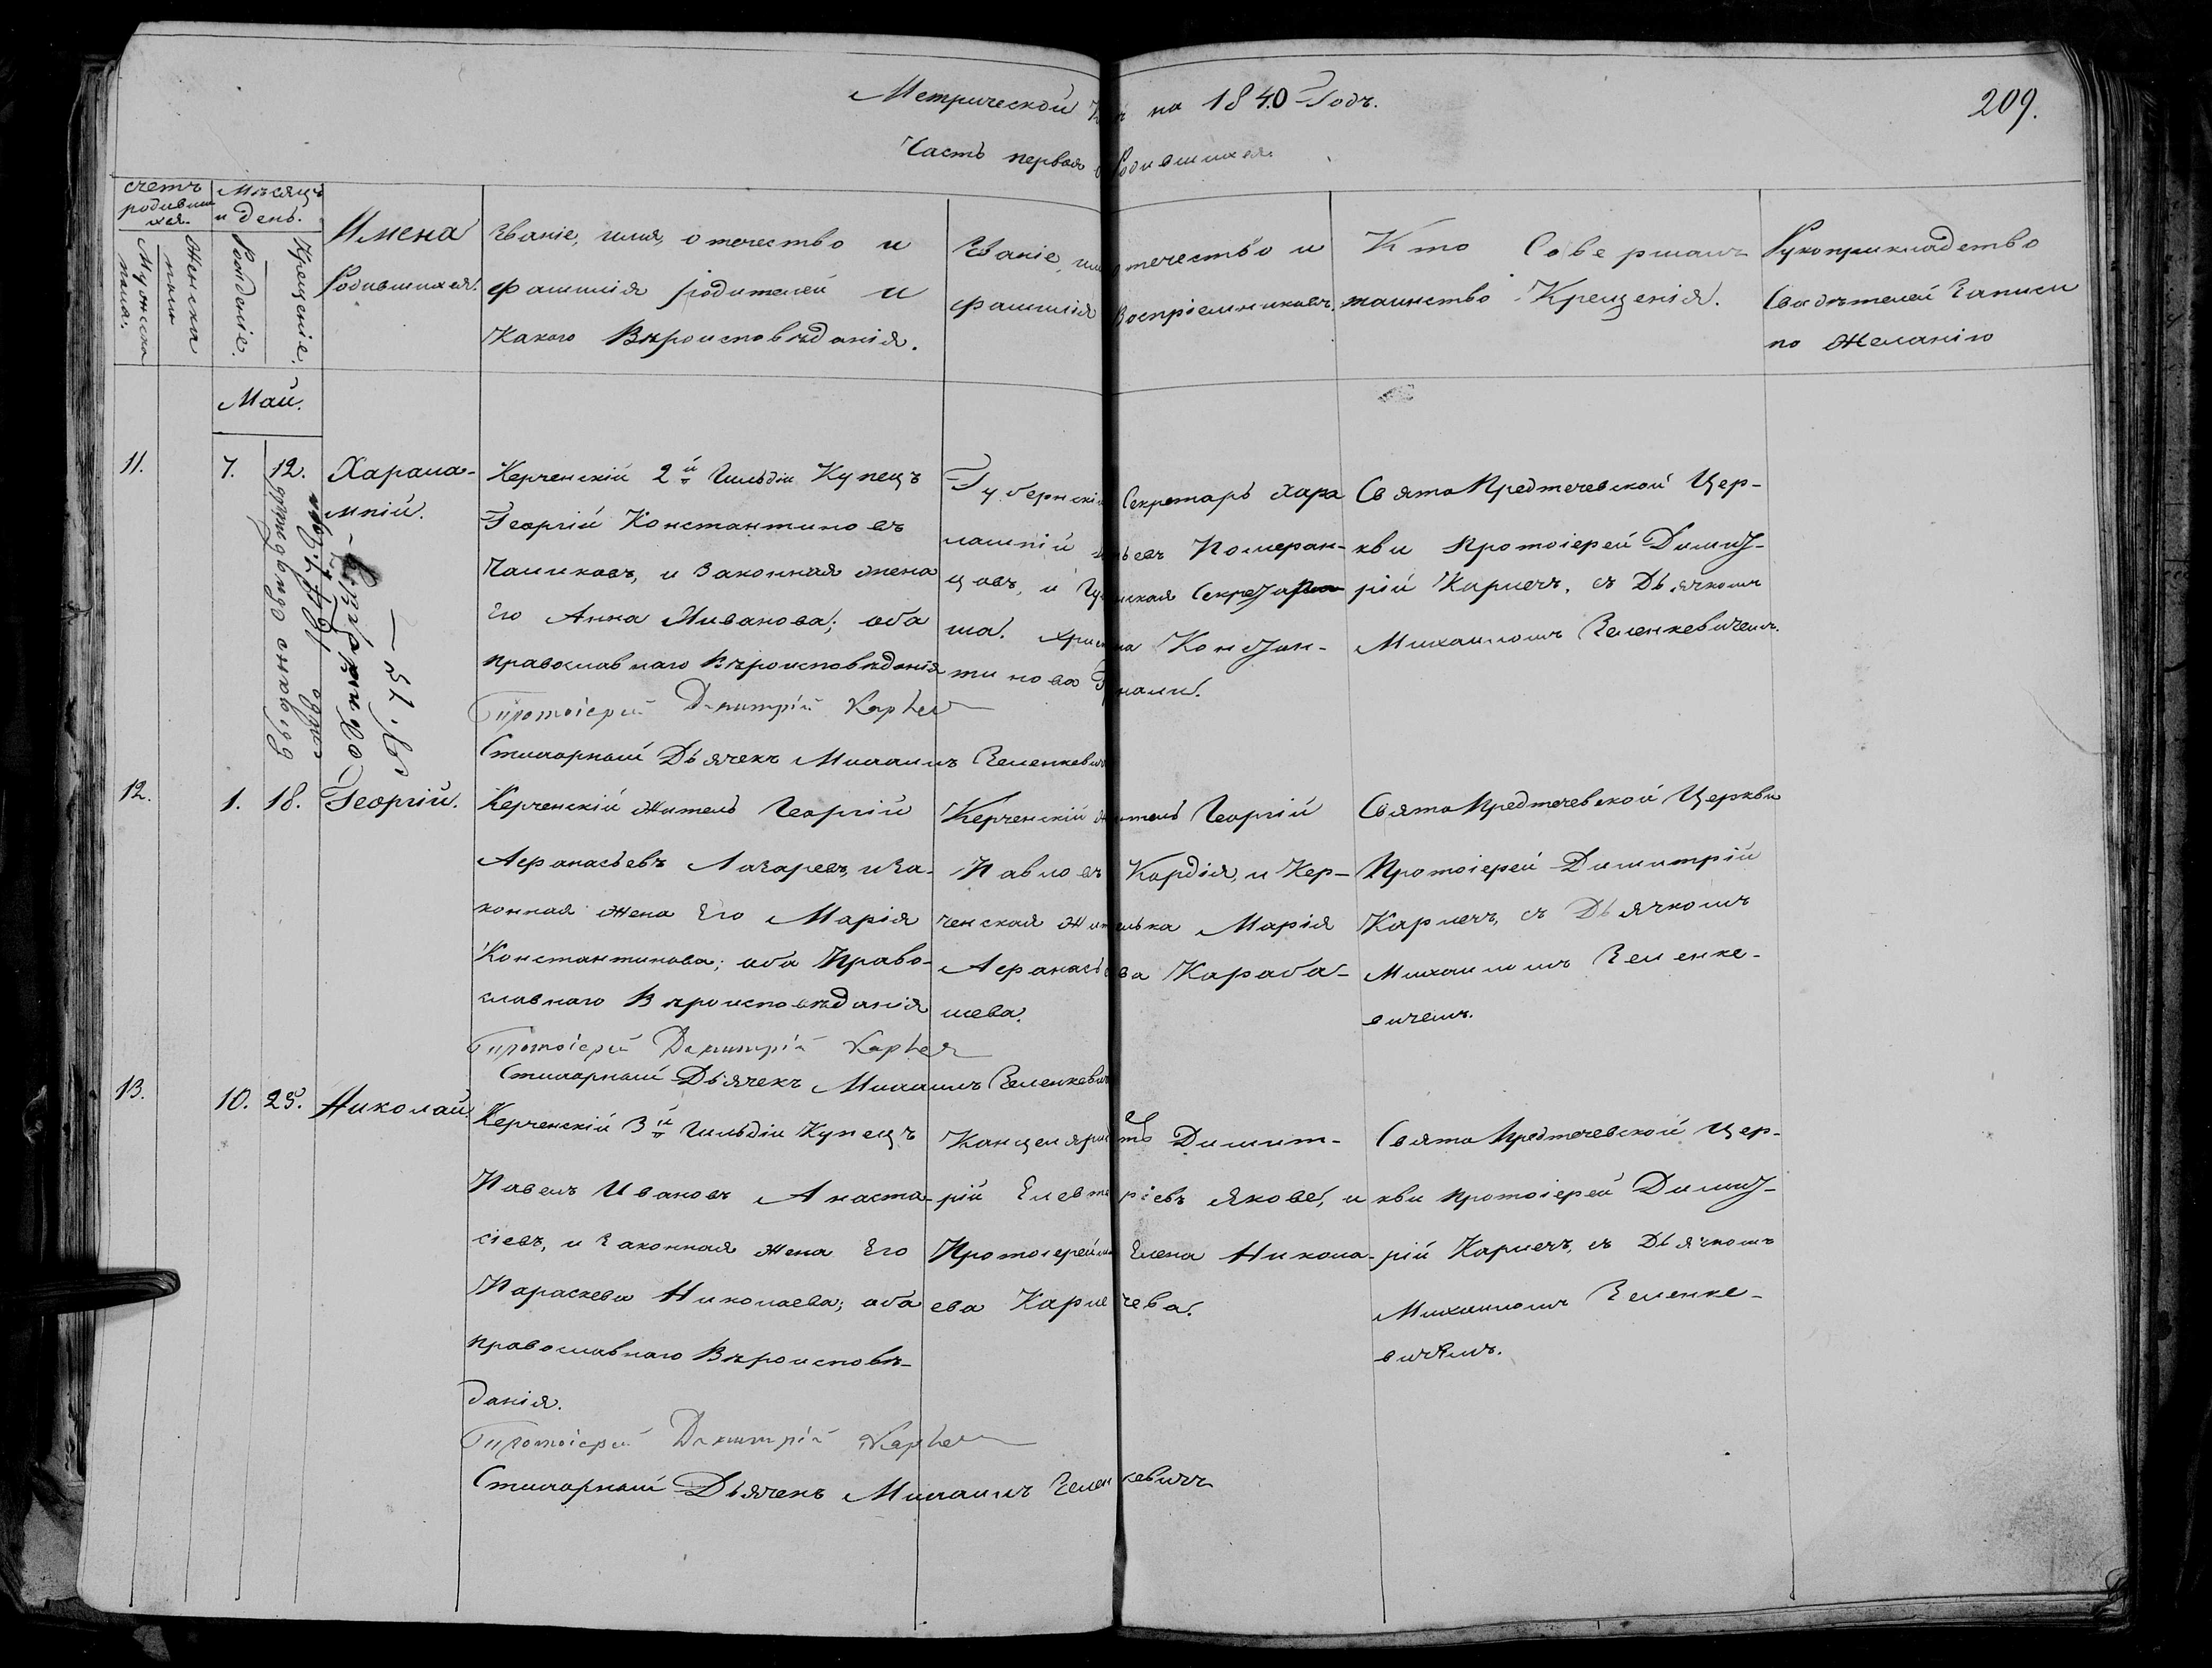 Метрической на 1840 Годъ.
209.
Часть первая о Родившихся
счетъ родившихся.
Мужеска пола.
Женска пола
Мѣсяцъ и день.
Рожденіе.
Крещеніе.
Имена
Родившихся.
Званіе, имя, отечество и
фамилія родителей и
какого Вѣроисповѣданія.
Званіе, имя отечество и
фамилія Воспріемниковъ.
Кто Совершалъ
таинство Крещенія.
Рукоприкладство
Свидѣтелей Записи
по желанію
Май.
11.
7.
12.
Харала-
мпій.
Керченскій 2й Гильдіи Купецъ
Георгій Константиновъ
и законная жена
Его Анна Иванова; оба
православнаго Вѣроисповѣданія
Протоіерей Димитрій
Стихарный Дьячекъ Михаилъ Зеленкевичъ
Губернскій Секретарь Хара
лампій Померан-
цовъ, и Секретар
ша. Христина Констан-
тинова
СвятоПредтечевской Цер-
кви Протоіерей Димит-
рій Карпечъ, съ Дьячкомъ
Михаиломъ Зеленкевичемъ.
№. 75
12.
1.
18.
Георгій.
Керченскій житель Георгій
Афанасьевъ Лазаревъ, и за-
конная жена Его Марія
Константинова; оба Право-
славнаго Вѣроисповѣданія
Протоіерей Димитрій
Стихарный Дьячекъ Михаилъ Зеленкевичъ
Керченскій житель Георгій
Павловъ Кордія, и Кер-
ченская жителька Марія
Афанасьева Караба-
шева.
СвятоПредтечевской Церкви
Протоіерей Димитрій
Карпечъ, съ Дьячкомъ
Михаиломъ Зеленке-
вичемъ.
13.
10.
25.
Николай.
Керченскій 3й Гильдіи Купецъ
Павелъ Ивановъ Анаста-
сіевъ, и законная жена Его
Параскева Николаева; оба
православнаго Вѣроисповѣ-
данія.
Протоіерей Димитрій
Стихарный Дьячекъ Михаилъ Зеленкевичъ
Канцеляристъ Димит-
рій Елевтеріевъ Яковев, и
Протоіерейша Елена Никола-
ева Карпечева.
СвятоПредтечевской Цер-
кви протоіерей Димит-
рій Карпечъ, съ Дьячкомъ
Михаиломъ Зеленке-
вичемъ.